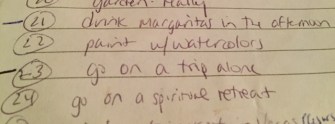 20 garden. really
21 drink margaritas in the afternoon
22 paint w/watercolors
23 go on a trip alone
24 go on a spiritual retreat